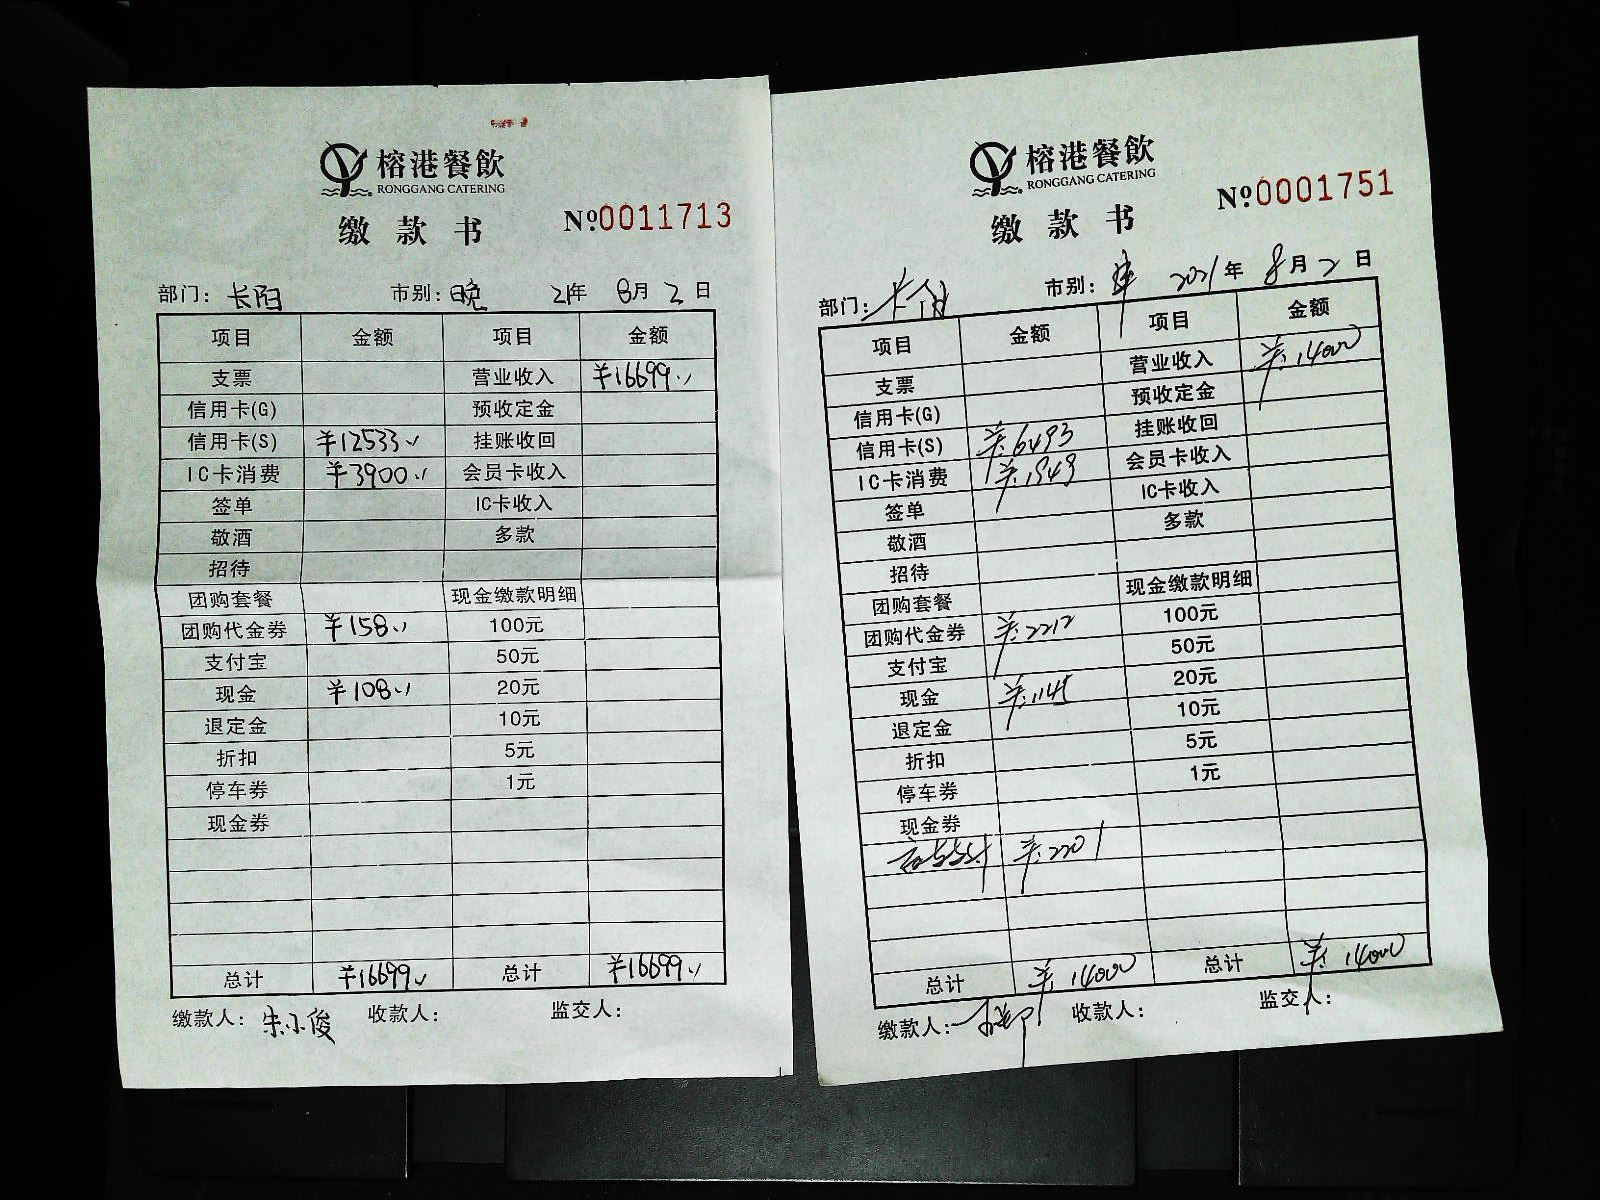 榕港餐飲
RONGGANG CATERING
缴款书 №.0011713
部门: 长阳 市别: 晚 21年 8月 2日
项目 金额 项目 金额
支票 营业收入 ¥16699.
信用卡(G) 预收定金
信用卡(S) ¥12533. 挂账收回
IC卡消费 ¥3900. 会员卡收入
签单 IC卡收入
敬酒 多款
招待
团购套餐 现金缴款明细
团购代金券 ¥158. 100元
支付宝 50元
现金 ¥108. 20元
退定金 10元
折扣 5元
停车券 1元
现金券
总计 ¥16699. 总计 ¥16699.
缴款人: 朱小俊 收款人: 监交人:
榕港餐飲
RONGGANG CATERING
缴款书 №.0001751
部门: 市别: 2021年 8月 2日
项目 金额 项目 金额
支票 营业收入 ¥:14000
信用卡(G) 预收定金
信用卡(S) ¥:6493 挂账收回
IC卡消费 ¥:1949 会员卡收入
签单 IC卡收入
敬酒 多款
招待
团购套餐 现金缴款明细
团购代金券 ¥:2212 100元
支付宝 50元
现金 ¥:1145 20元
退定金 10元
折扣 5元
停车券 1元
现金券
¥:2201
总计 ¥:14000 总计 ¥:14000
缴款人: 收款人: 监交人: